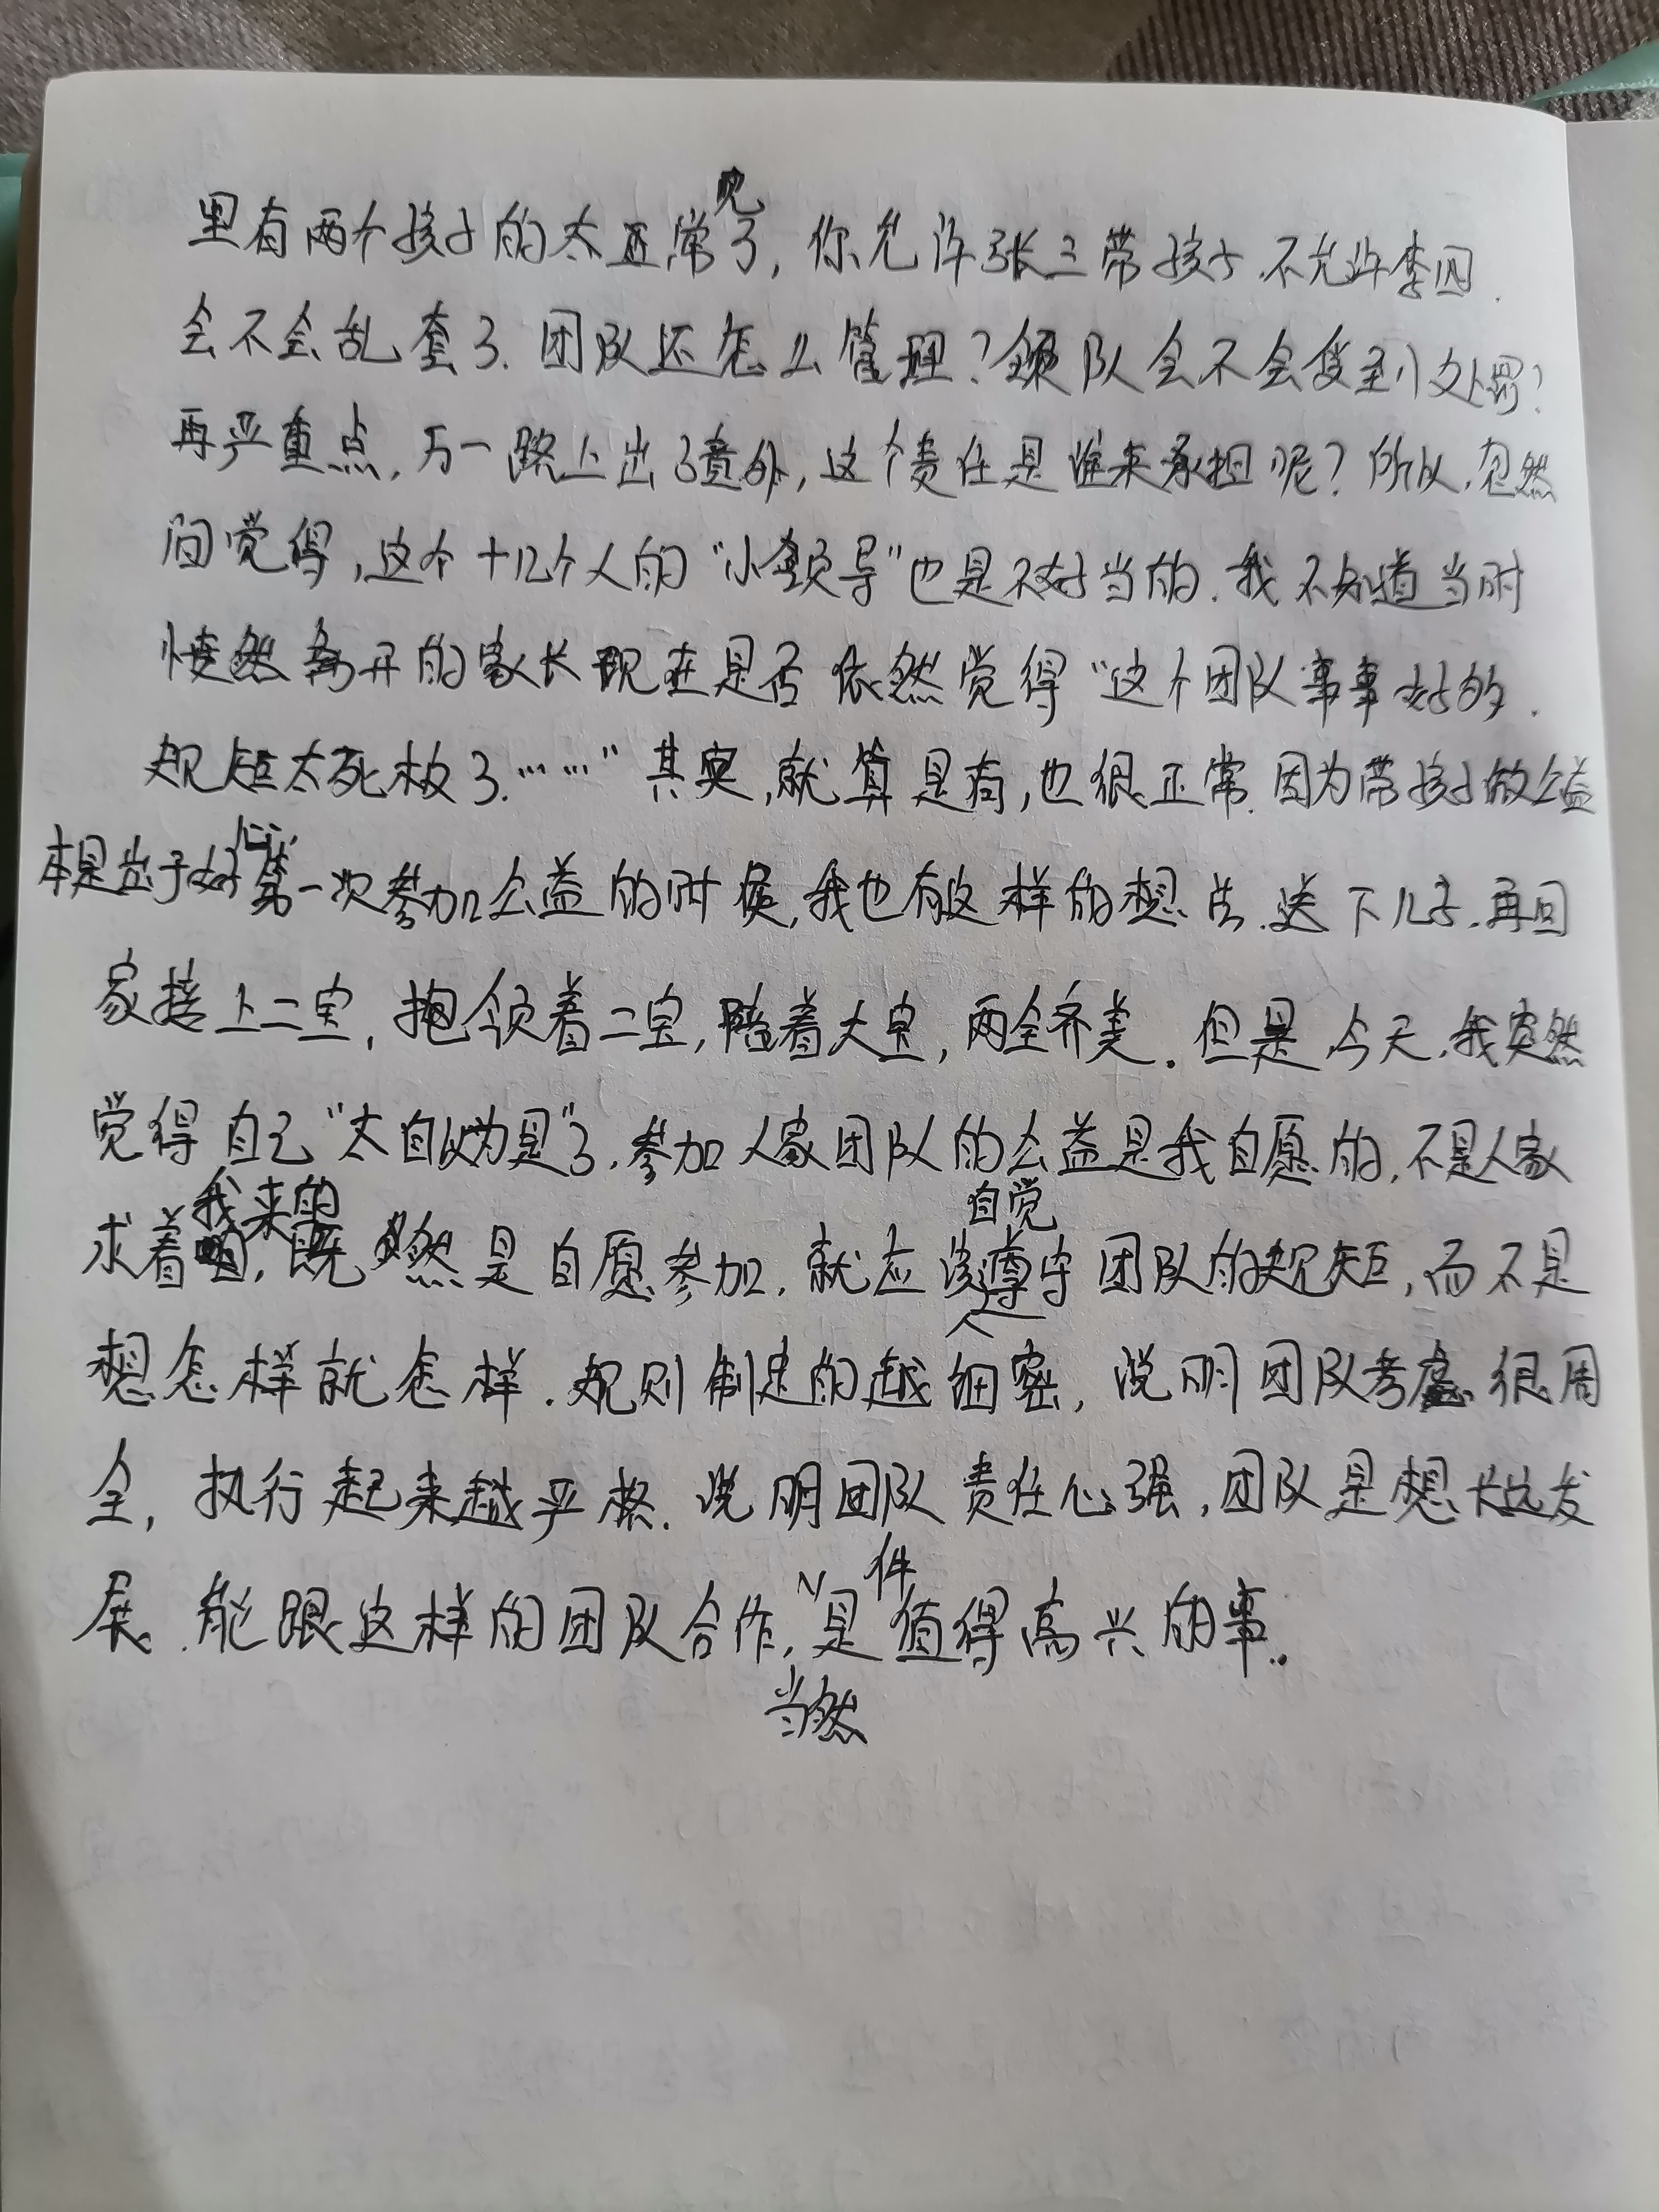 里有两个孩子的太正常见了，你允许张三带孩子.不允许李四.
会不会乱套了.团队还怎么管理？领队会不会受到处罚？
再严重点，万一路上出了意外，这个责任是谁来承担呢？所以，忽然
间觉得，这个十几个人的“小领导”也是不好当的.我不知道当时
愤然离开的家长现在是否依然觉得“这个团队事事的.
规矩太死板了.……”其实，就算是有，也很正常.因为带孩子做公益
本是出于好心，第一次参加公益的时候，我也有这样的想法.送下儿子.再回
家接上二宝，抱领着二宝，陪着大宝，两全齐美.但是，今天，我突然
觉得自己“太自以为是”了.参加人家团队的公益是我自愿的，不是人家
求着我来的，既然是自愿参加，就应该自觉遵守团队的规矩，而不是
想怎样就怎样.规则制定的越细密，说明团队考虑很周
全，执行起来越严格.说明团队责任心强，团队是想长远发
展.能跟这样的团队合作，当然是件值得高兴的事.